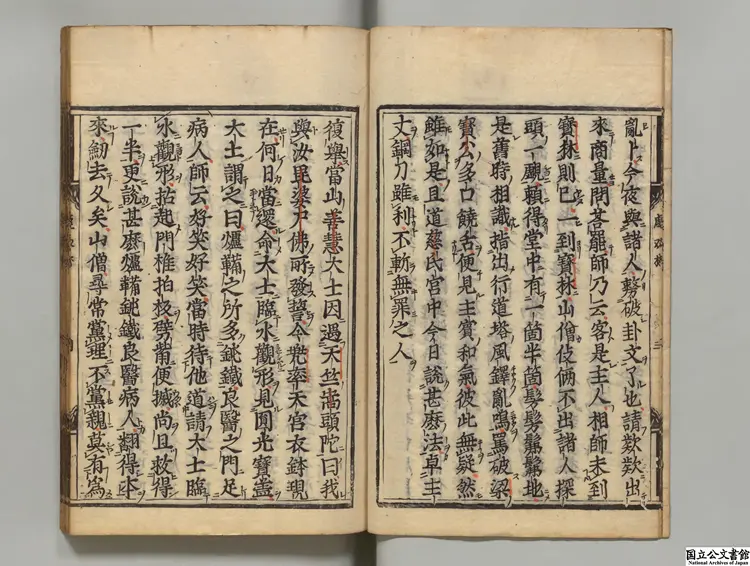 亂卜今夜與諸人剺破卦文了也請欵欵出
來商量問荅罷師乃云客是主人相師未到
寶林則已一到寶林山僧伎倆不出諸人探
頭一覷賴得堂中有一箇半箇地
是舊時相識指出行道塔風鐸亂鳴罵破梁
寶公多口饒舌便見主賓和氣彼此無疑然
雖如是且道慈氏宮中今日說甚麼法卓主
丈鋼刀雖利不斬無罪之人
復舉當山善慧大士因過天竺嵩頭陀曰我
與汝毘婆尸佛所發誓今兠率天宮衣鉢現
在何日當還命大士臨水觀形見圓光寶盖
大士謂之曰爐鞴之所多鈍鐵良醫之門足
病人師云好笑好笑當時待他道請大士臨
水觀形拈起門椎拍板劈胷便摵尚且救得
一半更說甚麼爐鞴鈍鐵良醫病人翻得本
來劒去久矣山僧尋常黨理不黨親莫有為
国立公文書館
National Archives of Japan